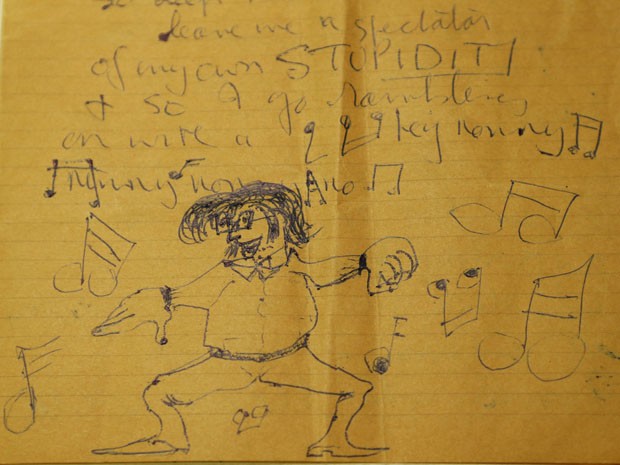 leave me a spectator
of my own STUPIDITY
& so I go rambling
on with a hey nonney
nonney no